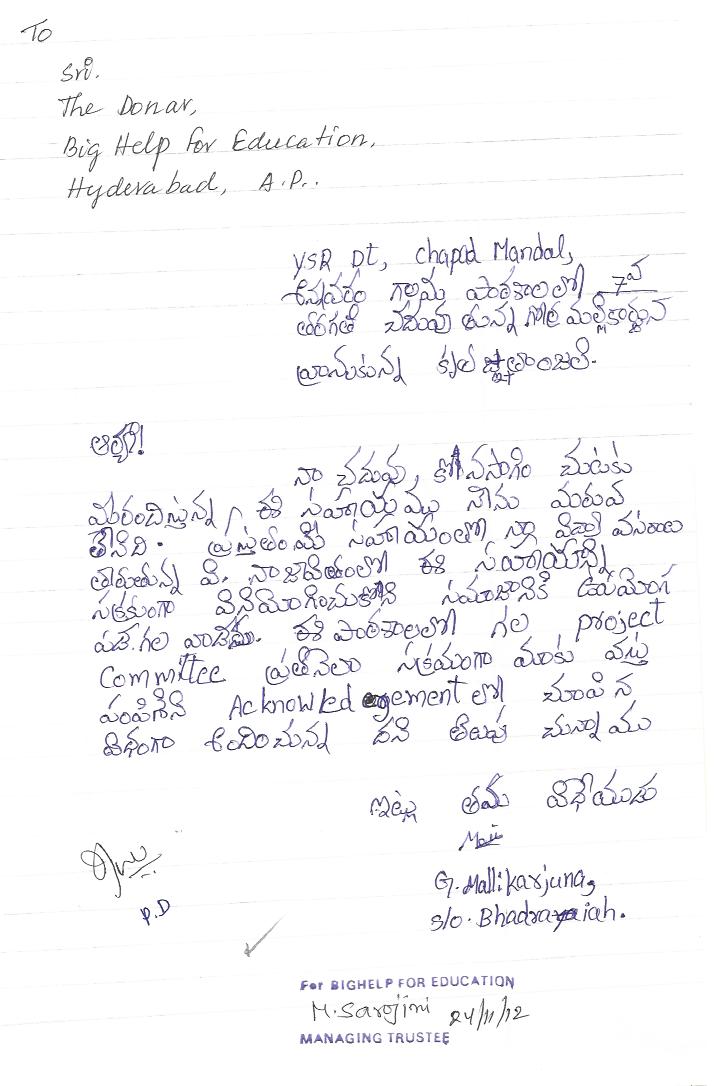 To
Sri.
The Donar,
Big Help for Education,
Hyderabad, A.P..
YSR Dt, chapad Mandal,
అన్నవరం గ్రామ పాఠశాలలో 7వ
తరగతి చదువుతున్న గొల్ల మల్లికార్జున
వ్రాసుకున్న కృతజ్ఞతాంజలి.
ఆర్యా!
నా చదువు, కొనసాగించుటకు
మీరందిస్తున్న ఈ సహాయమ్ము నేను మరువ
లేనిది. ప్రస్తుతం మీ సహాయంతో నా విద్యా వసరాలు
తీరుతున్నవి. నా జీవితంలో ఈ సహాయాన్ని
సక్రమంగా వినియోగించుకొని సమాజానికి ఉపయోగ
పడగల వాడిను. ఈ పాఠశాలలో గల project
Committee ప్రతినెలా సక్రమంగా మాకు వస్తు
పంపిణిని Acknowledegement లో చూపిన
విధంగా అందించుచున్న దని తెలుపు చున్నాము
ఇట్లు తమ విధేయుడు
G. Mallikarjuna,
S/o. Bhadraiah.
P.D
For BIGHELP FOR EDUCATION
M. Sarojini 24/11/12
MANAGING TRUSTEE